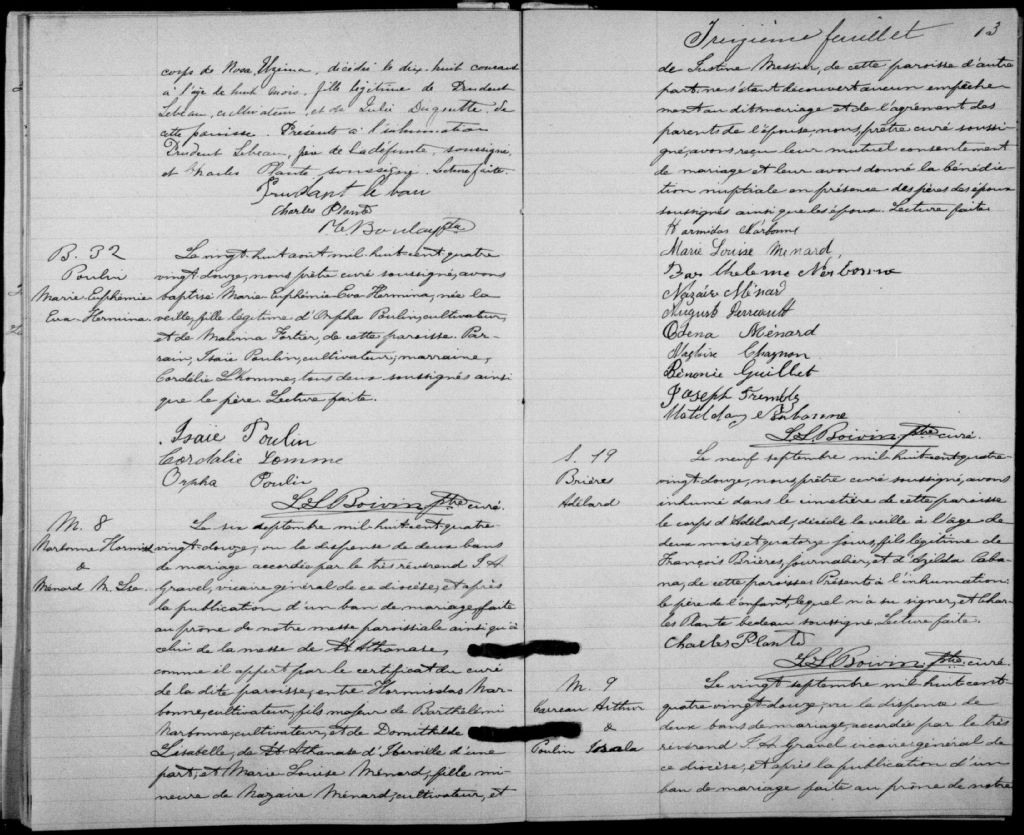 corps de Rosa, Uzima, décédée le dix-huit courant
à l'âge de huit mois, fille légitime de Prudent
Lebeau, cultivateur, et de Julie Duquette, de
cette paroisse. Présents à l'inhumation
Prudent Lebeau, père de la défunte, soussigné,
et Charles Plante soussigné. Lecture faite.
Prudant le bau
Charles Plante
Boulay ptre
B. 32
Poulin
Marie-Euphémie
Eva-Hermina.
Le vingt-huit août mil huit cent quatre
vingt-douze, nous, prêtre curé soussigné, avons
baptisé Marie-Euphémie-Eva-Hermina, née la
veille, fille légitime d'Orpha Poulin, cultivateur,
et de Malvina Fortier, de cette paroisse. Par-
rain, Isaïe Poulin, cultivateur; marraine,
Cordélie L'homme, tous deux soussignés ainsi
que le père. Lecture faite.
Isaïe Poulin
Cordalie Lomme
Orpha Poulin
L. S. Boivin ptre curé.
M. 8
Narbonne Hormisd
&
Ménard M. Lse.
Le six septembre mil huit cent quatre
vingt-douze, vu la dispense de deux bans
de mariage accordée par le très révérend J. A.
Gravel, vicaire général de ce diocèse, et après
la publication d'un ban de mariage, faite
au prône de notre messe paroissiale ainsi qu'à
celui de la messe de St Athanase,
comme il appert par le certificat du curé
de la dite paroisse, entre Hormisdas Nar-
bonne, cultivateur, fils majeur de Barthélémi
Narbonne, cultivateur, et de Domithilde
Lisabelle, de St Athanase d'Iberville d'une
part, et Marie Louise Ménard, fille mi-
neure de Nazaire Ménard, cultivateur, et
Treizième feuillet
13
de Justine Messier, de cette paroisse d'autre
part, ne s'étant découvert aucun empêche-
ment au dit mariage et de l'agrément des
parents de l'épouse, nous, prêtre curé soussi-
gné, avons reçu leur mutuel consentement
de mariage et leur avons donné la bénédic-
tion nuptiale en présence des pères des époux
soussignés ainsi que les époux. Lecture faite
Hormidas Narbonne
Marie Louise Ménard,
Bartheleme Narbonne
Nazair Ménard
August Derreault
Odena Ménard
Chagnon
Bénonie Guillet
Joseph Trembly
Matilda Narbonne
L. S. Boivin ptre curé.
S. 19
Brières
Adélard
Le neuf septembre mil huit cent quatre
vingt-douze, nous, prêtre curé soussigné, avons
inhumé dans le cimetière de cette paroisse
le corps d'Adélard, décédé la veille à l'âge de
deux mois et quatorze jours, fils légitime de
François Brières, journalier, et d'Exilda Caba-
na, de cette paroisse. Présents à l'inhumation:
le père de l'enfant, lequel n'a su signer, et Char-
les Plante bedeau soussigné. Lecture faite.
Charles Plante
L. S. Boivin ptre curé.
M. 9
Cureau Arthur
&
Poulin Rosala
Le vingt septembre mil huit cent-
quatre-vingt-douze, vu la dispense de
deux bans de mariage, accordée par le très
révérend J. A. Gravel vicaire général de
ce diocèse, et après la publication d'un
ban de mariage faite au prône de notre